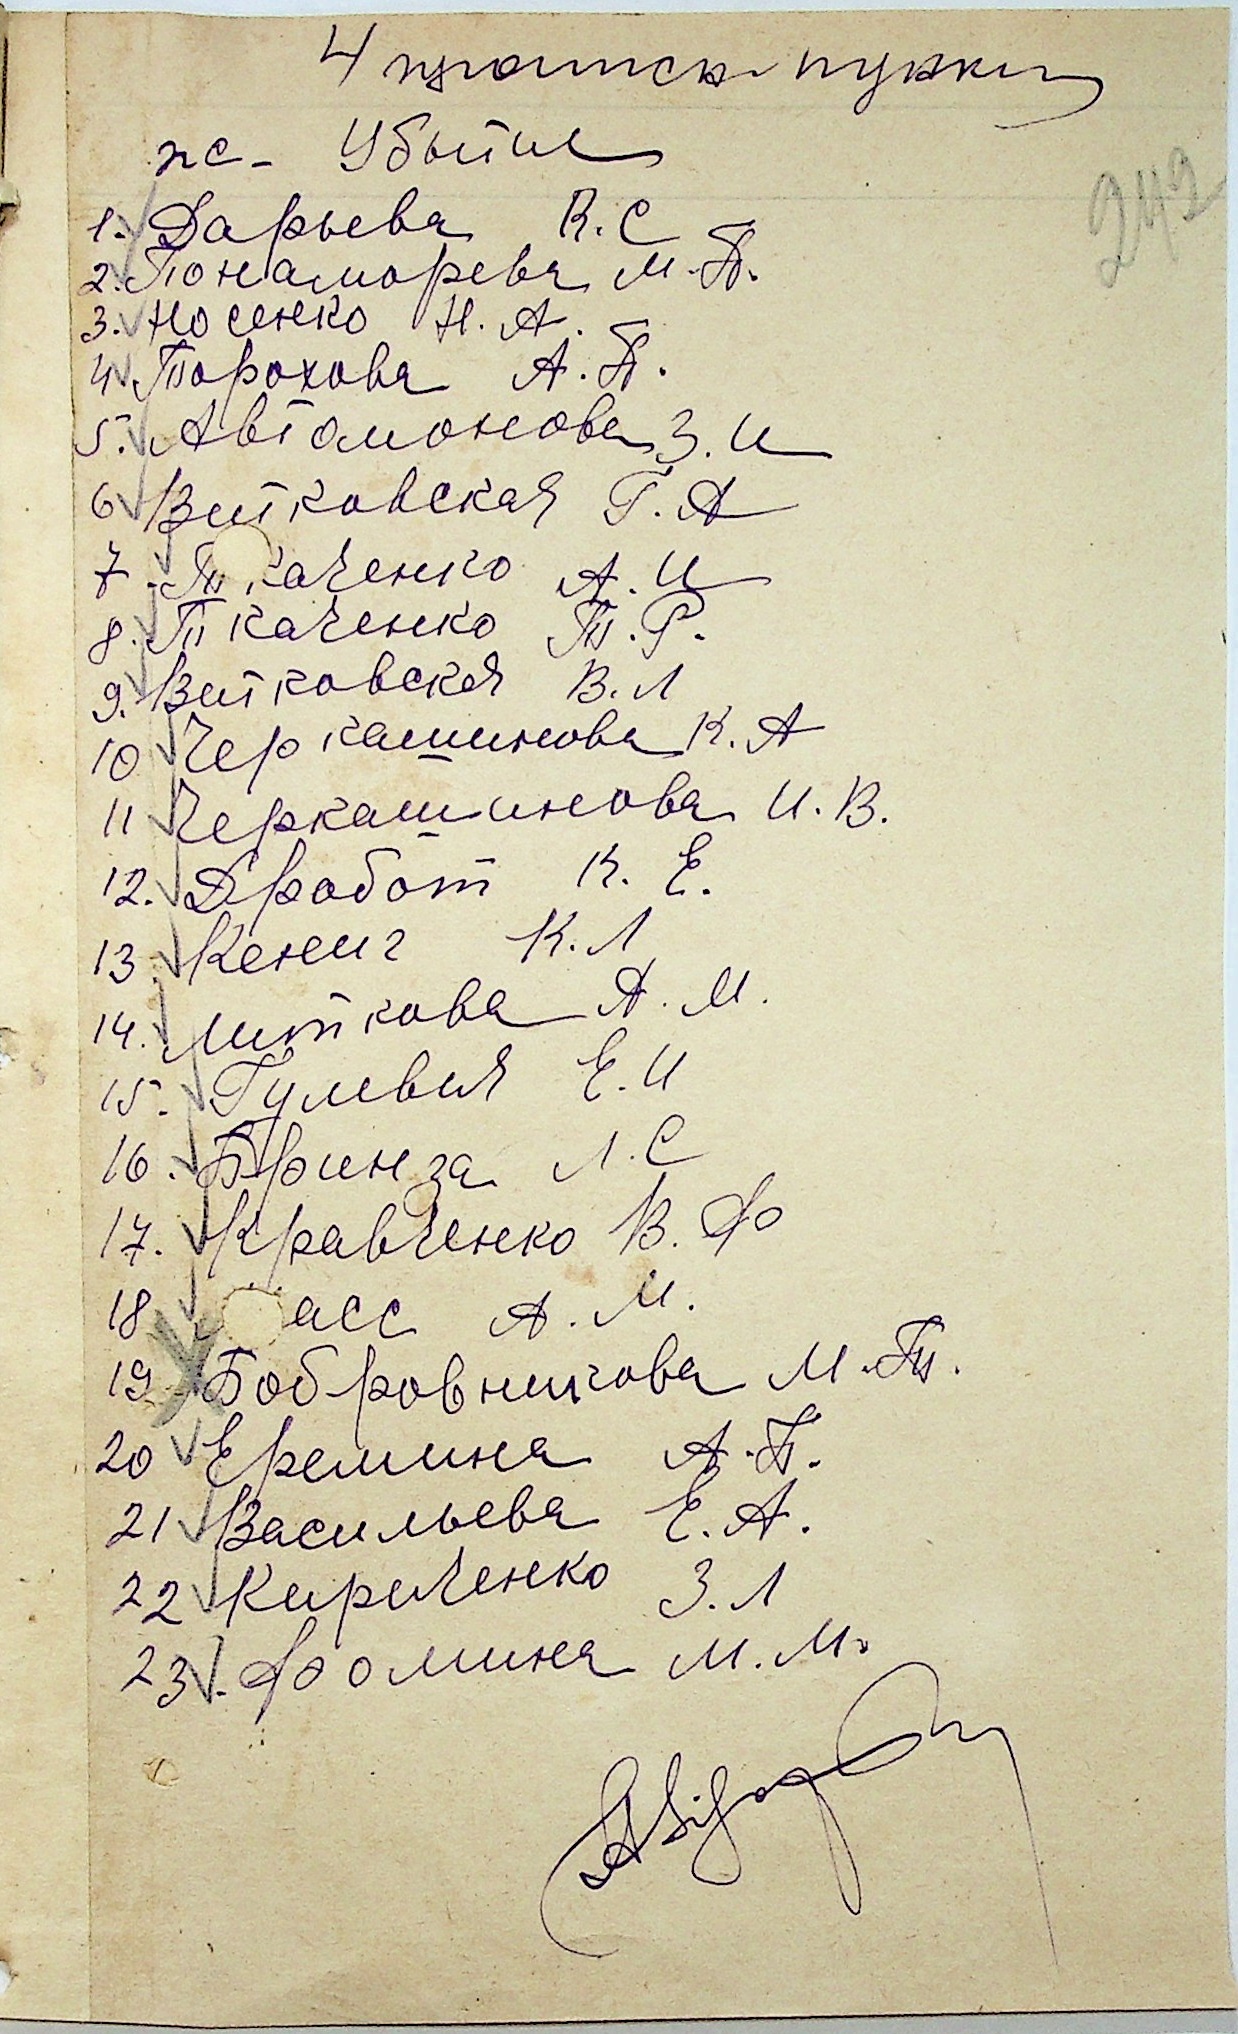 4 пропиский пункт
242
жс - Убыли
1. Дарьева К.С
2. Понаморева М.П.
3. Носенко Н.А.
4 Торохова А.П.
5. Автомонова З.И
6 Витковская Г.А
7. Ткаченко А.И
8. Ткаченко Т.Р.
9. Витковская В.Л
10 Черкашинова К.А
11 Черкашинова И.В.
12. Дработ К.Е.
13 Кениг К.Л
14. Литкова А.М.
15. Гулевич Е.И
16. Принза Л.С
17. Кравченко В.Ф
18 асс А.М.
19 Бобровникова М.Т.
20 Еремина А.П.
21 Васильева Е.А.
22 Кириченко З.Л
23. Фомина М.М.